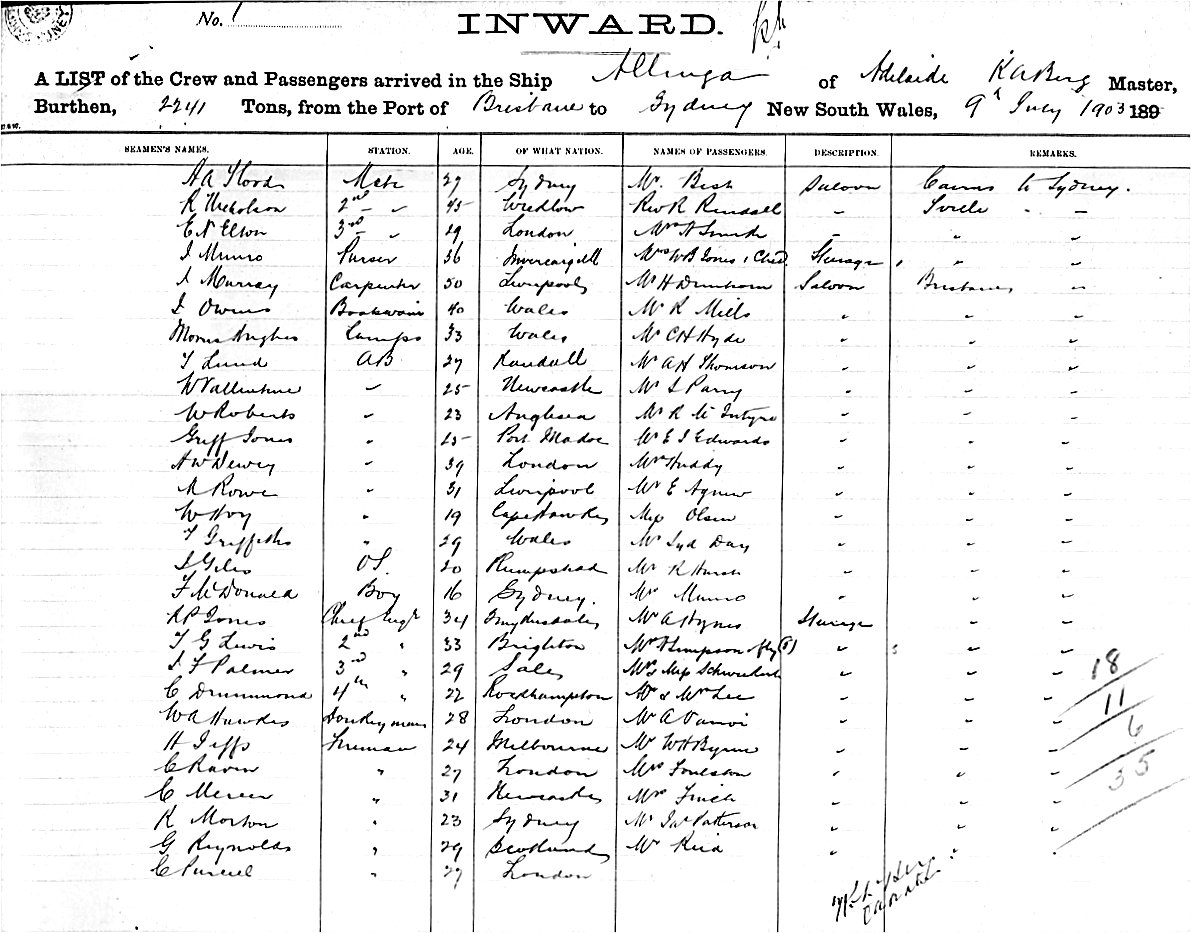 No. 1 INWARD.
A LIST of the Crew and Passengers arrived in the Ship Allinga of Adelaide K A Berg Master,
Burthen, 2241 Tons, from the Port of Brisbane to Sydney New South Wales, 9th July 1903 189
SEAMEN'S NAMES. STATION. AGE. OF WHAT NATION. NAMES OF PASSENGERS. DESCRIPTION. REMARKS.
A A Flood Mate 27 Sydney Mr. Best Saloon Cairns to Sydney.
R Nicholson 2nd " 45 Rev R Rundall " "
E N Elton 3rd " 29 London Mrs A Smith " " "
J Munro Purser 36 Invercargill Mrs W B Jones 1 Child Steerage " "
J Murray Carpenter 50 Liverpool Mr H Dunthorn Saloon Brisbane "
J Owens Boatswain 40 Wales Mr R Mills " " "
Morris Hughes Lamps 33 Wales Mr C H Hyde " " "
T Lund AB 27 Mr A H Thomson " " "
W Vallentine " 25 Newcastle Mr S Parry " " "
W Roberts " 23 Anglesea Mr R McIntyre " " "
Griff Jones " 25 Port Madoc Mr E J Edwards " " "
A W Dewey " 39 London Mrs Huddy " " "
R Rowe " 31 Liverpool Mr E Agnew " " "
W Hoy " 19 Cape Hawkes Miss Olsen " " "
T Griffiths " 29 Wales Mr Syd Day " " "
J Giles OS. 20 Plumpstead Mr R Hursh " " "
F McDonald Boy 16 Sydney. Mrs Munro " " "
R P Jones Chief Engr 34 Mr A Hynes Steerage " "
T G Lewis 2nd " 33 Brighton Mrs Simpson " " "
J F Palmer 3rd " 29 Sale Mrs & Miss " " " 18
C Drummond 4th " 22 Roedhampton Mr & Mrs Lee " " " 11
W A Hawkes Donkeyman 28 London Mr A " " " 6
H Jeffs Fireman 24 Melbourne Mr W H Byrne " " " 35
C Raven " 27 London Mrs Foulston " " "
C Mercer " 31 Newcastle Mrs Finch " " "
R Morton " 23 Sydney Mr Jas Patterson " " "
G Reynolds " 29 Scotland Mr Reid " " "
C Purcell " 27 London